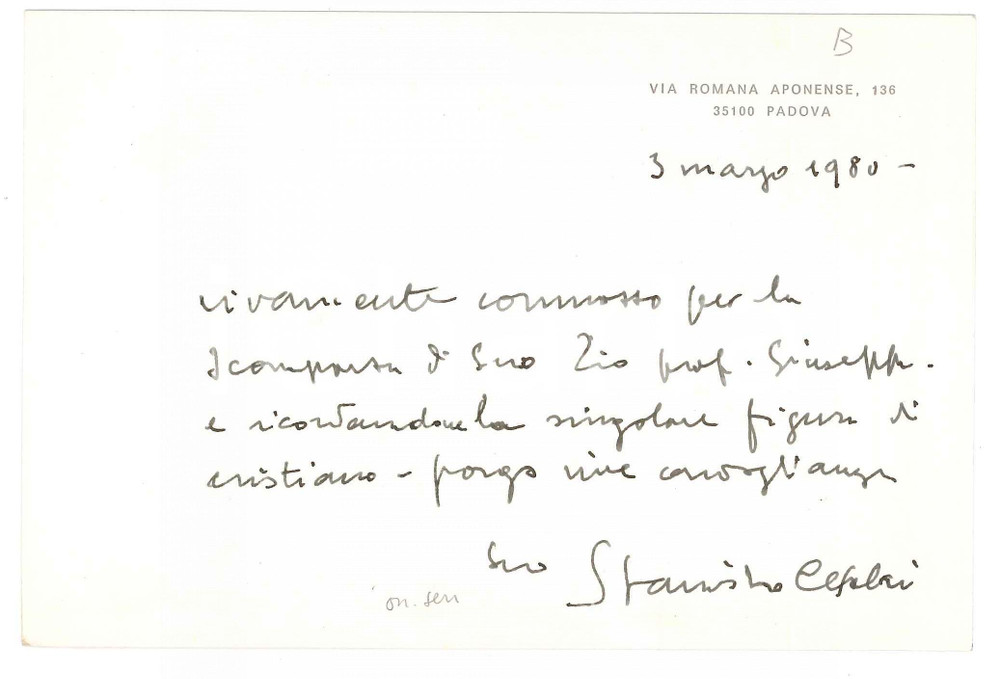 B
VIA ROMANA APONENSE, 136
35100 PADOVA
3 marzo 1980 -
vivamente commosso per la
scomparsa di Suo Zio prof. Giuseppe.
e ricordandone la singolare figura di
cristiano - porgo vive condoglianze
Suo Stanislao Ceschi
on. sen